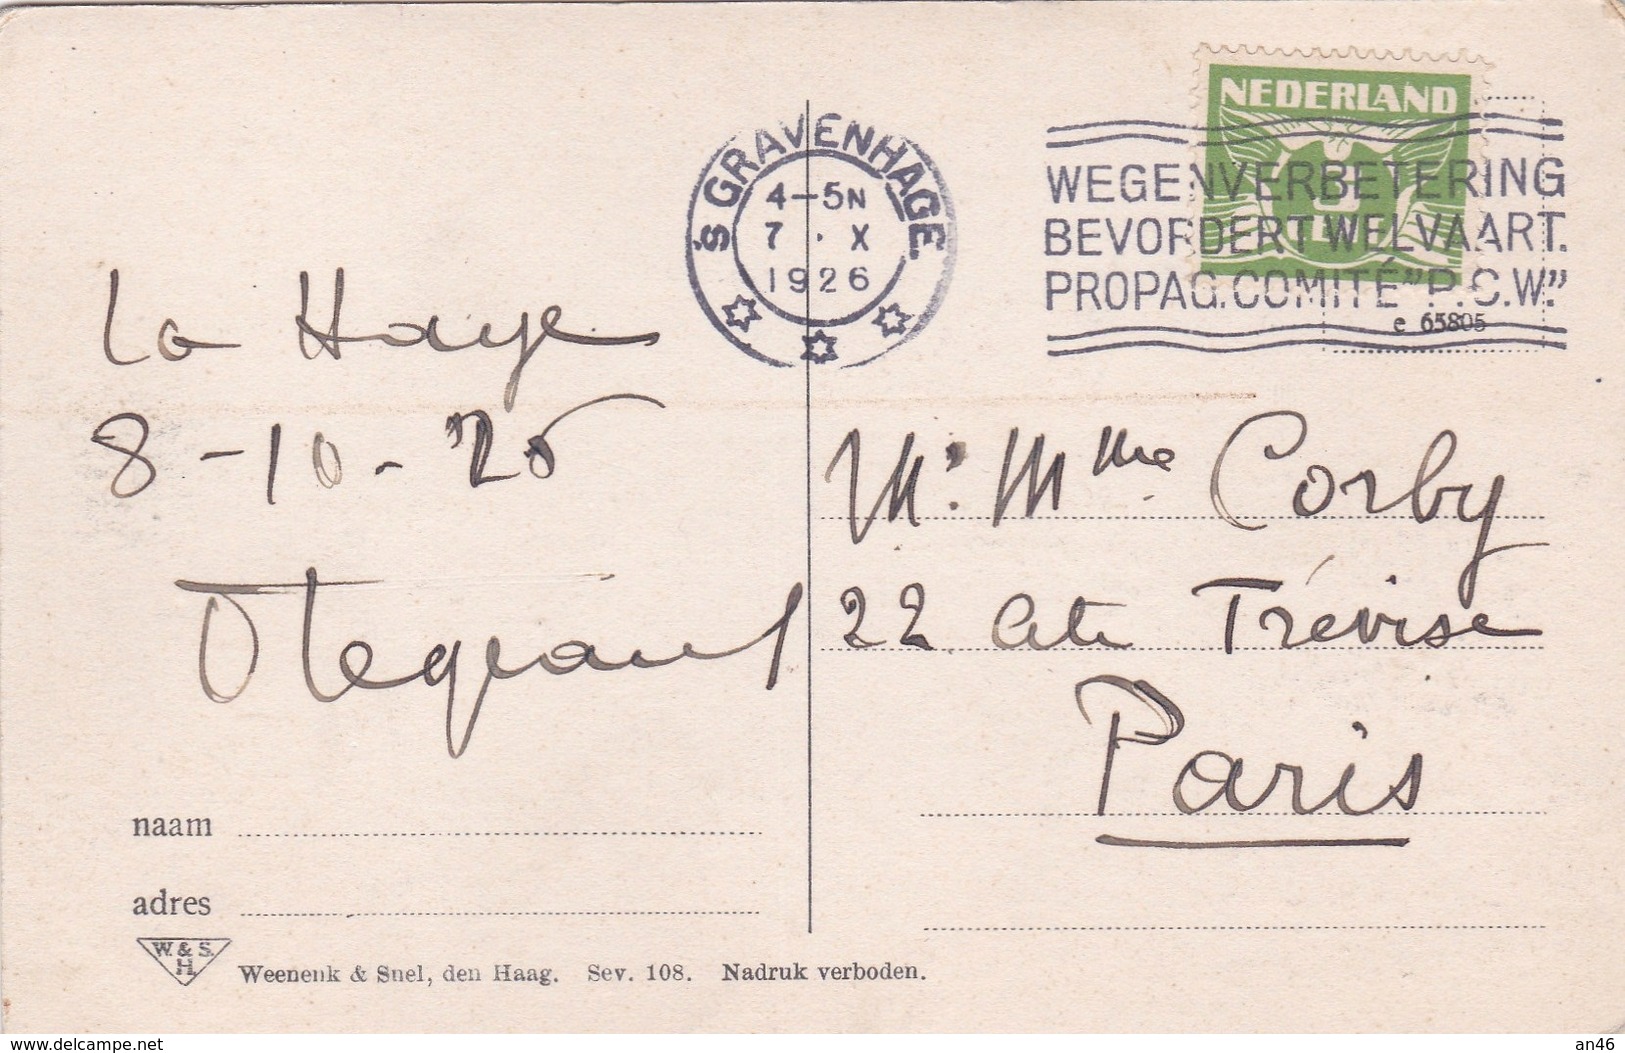 NEDERLAND
'S GRAVENHAGE
4–5N
7 · X
1926
WEGENVERBETERING
BEVORDERT WELVAART.
PROPAG. COMITÉ "P.C.W."
e 65805
La Haye
8-10-26
Mr. Mme Corby
22 Cité Trévise
Paris
naam
adres
W. & S.
H.
Weenenk & Snel, den Haag. Sev. 108. Nadruk verboden.
www.delcampe.net
an46